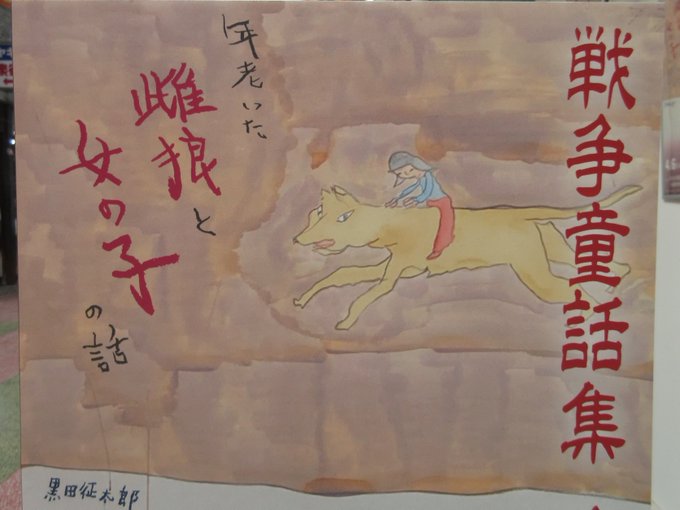 戦争童話集
年老いた
雌狼と
女の子
の話
黒田征太郎